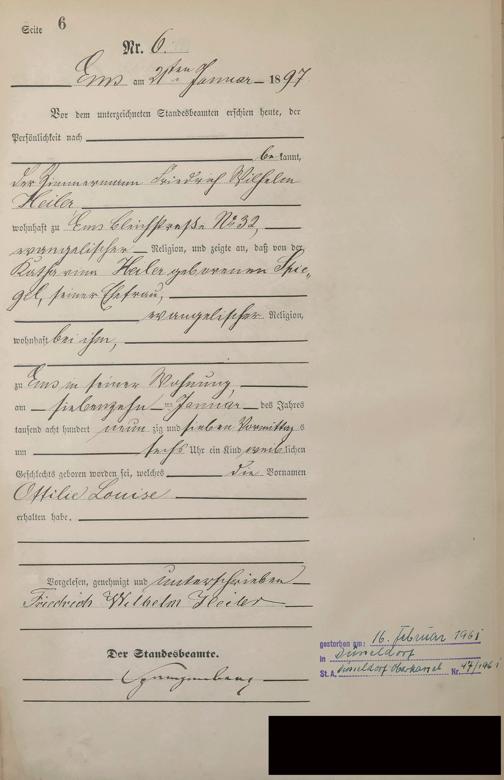 Seite 6
Nr. 6.
Ems am 21ten Januar 1897
Vor dem unterzeichneten Standesbeamten erschien heute, der
Persönlichkeit nach
bekannt,
der Zimmermann Friedrich Wilhelm
Heiler
wohnhaft zu Ems Bleichstraße No 32
evangelischer Religion, und zeigte an, daß von der
Katharina Heiler geborenen Spie-
gel, seiner Ehefrau,
evangelischer Religion,
wohnhaft bei ihm,
zu Ems in seiner Wohnung
am siebenzehn ten Januar des Jahres
tausend acht hundert neun zig und sieben Vormittags
um sechs Uhr ein Kind weiblichen
Geschlechts geboren worden sei, welches die Vornamen
Ottilie Louise
erhalten habe.
Vorgelesen, genehmigt und unterschrieben
Friedrich Wilhelm Heiler
Der Standesbeamte.
gestorben am: 16. Februar 1961
in Düsseldorf
St. A. Düsseldorf Oberkassel Nr. 47/1961